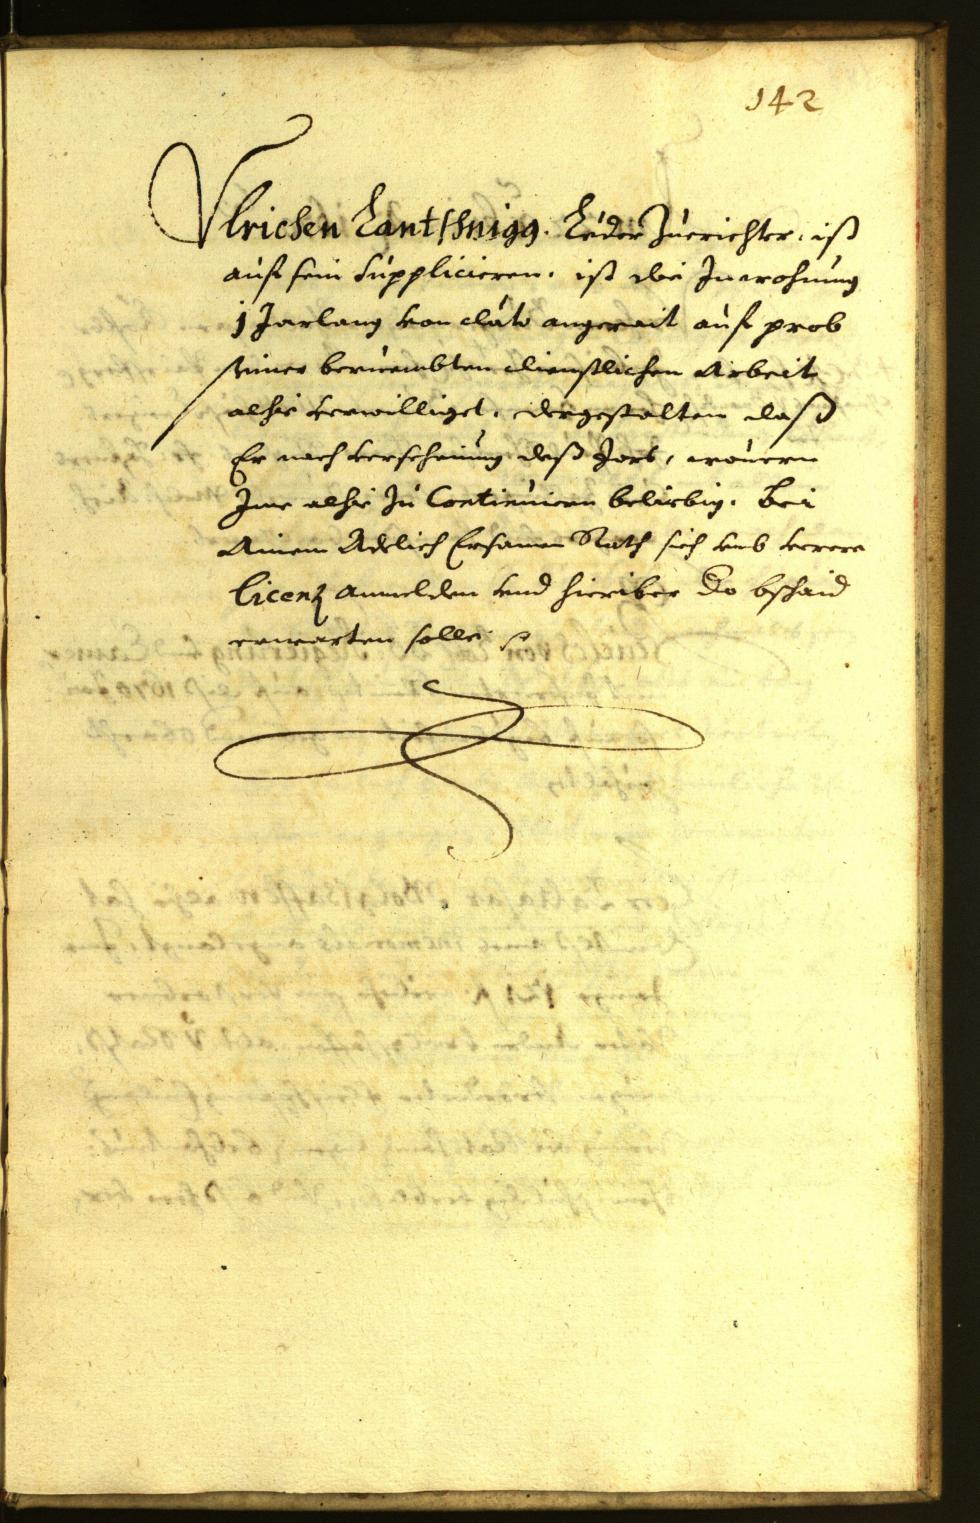 142
Ulrichen Lantschnigg. Lederzuerichter, ist
auf sein supplicieren. ist die Inwohnung
j Jarlang von dato angerait auf prob
seiner beruembten dienstlichen Arbeit
alhie verwilliget, dergestalten daß
Er nach verscheinung deß Jars, wouern
Ime alhie zu Continuiern beliebig. bei
Ainem Adelich Ersamen Rath sich umb verere
licenz anmelden und hieriber Do bschaid
erwarten solle